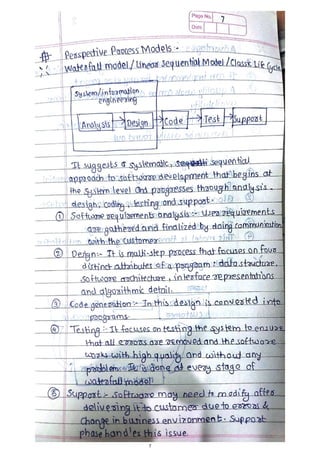 Page No. 7
Date
# Perspective Process Models :-
* Waterfall model / Linear Sequential Model / Classic Life Cycle
System/information
engineering
Analysis → Design → Code → Test → Support
It suggests a systematic, sequential
approach to software development that begins at
the system level and progresses through analysis,
design, coding, testing and support.
① Software requirements analysis :- User requirements
are gathered and finalized by doing communication
with the customer
② Design :- It is multi-step process that focuses on four
distinct attributes of a program : data structure,
software architecture, interface representations
and algorithmic detail.
③ Code generation :- In this design is converted into
programs
④ Testing :- It focuses on testing the system to ensure
that all errors are removed and the software
works with high quality and without any
problem. It is done at every stage of
waterfall model.
⑤ Support :- Software may need to modify after
delivering it to customer due to errors &
change in business environment. Support
phase handles this issue.